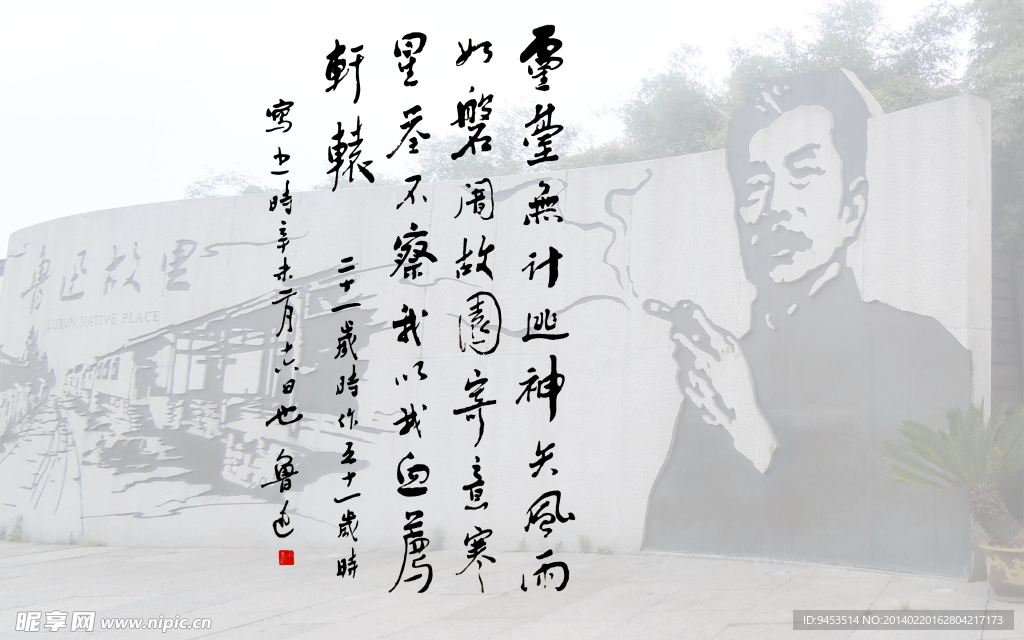 靈臺無計逃神矢風雨
如磐闇故園寄意寒
星荃不察我以我血薦
軒轅
二十一歲時作五十一歲時
寫之時辛未二月十六日也 魯迅
魯迅故里
LUXUN NATIVE PLACE
昵享网 www.nipic.cn
ID:9453514 NO:20140220162804217173